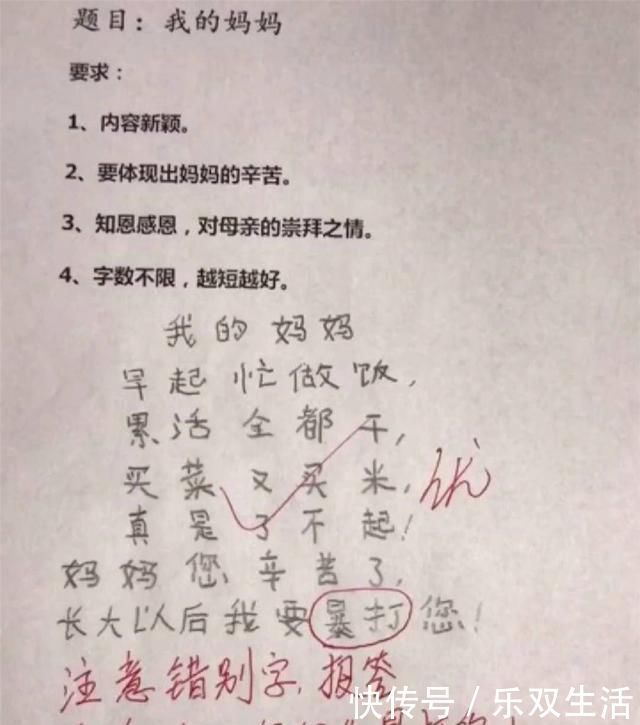 题目：我的妈妈
要求：
1、内容新颖。
2、要体现出妈妈的辛苦。
3、知恩感恩，对母亲的崇拜之情。
4、字数不限，越短越好。
我的妈妈
早起忙做饭，
累活全都干，
买菜又买米，
优
真是了不起！
妈妈您辛苦了，
长大以后我要暴打您！
注意错别字，报答
快传号／乐双生活